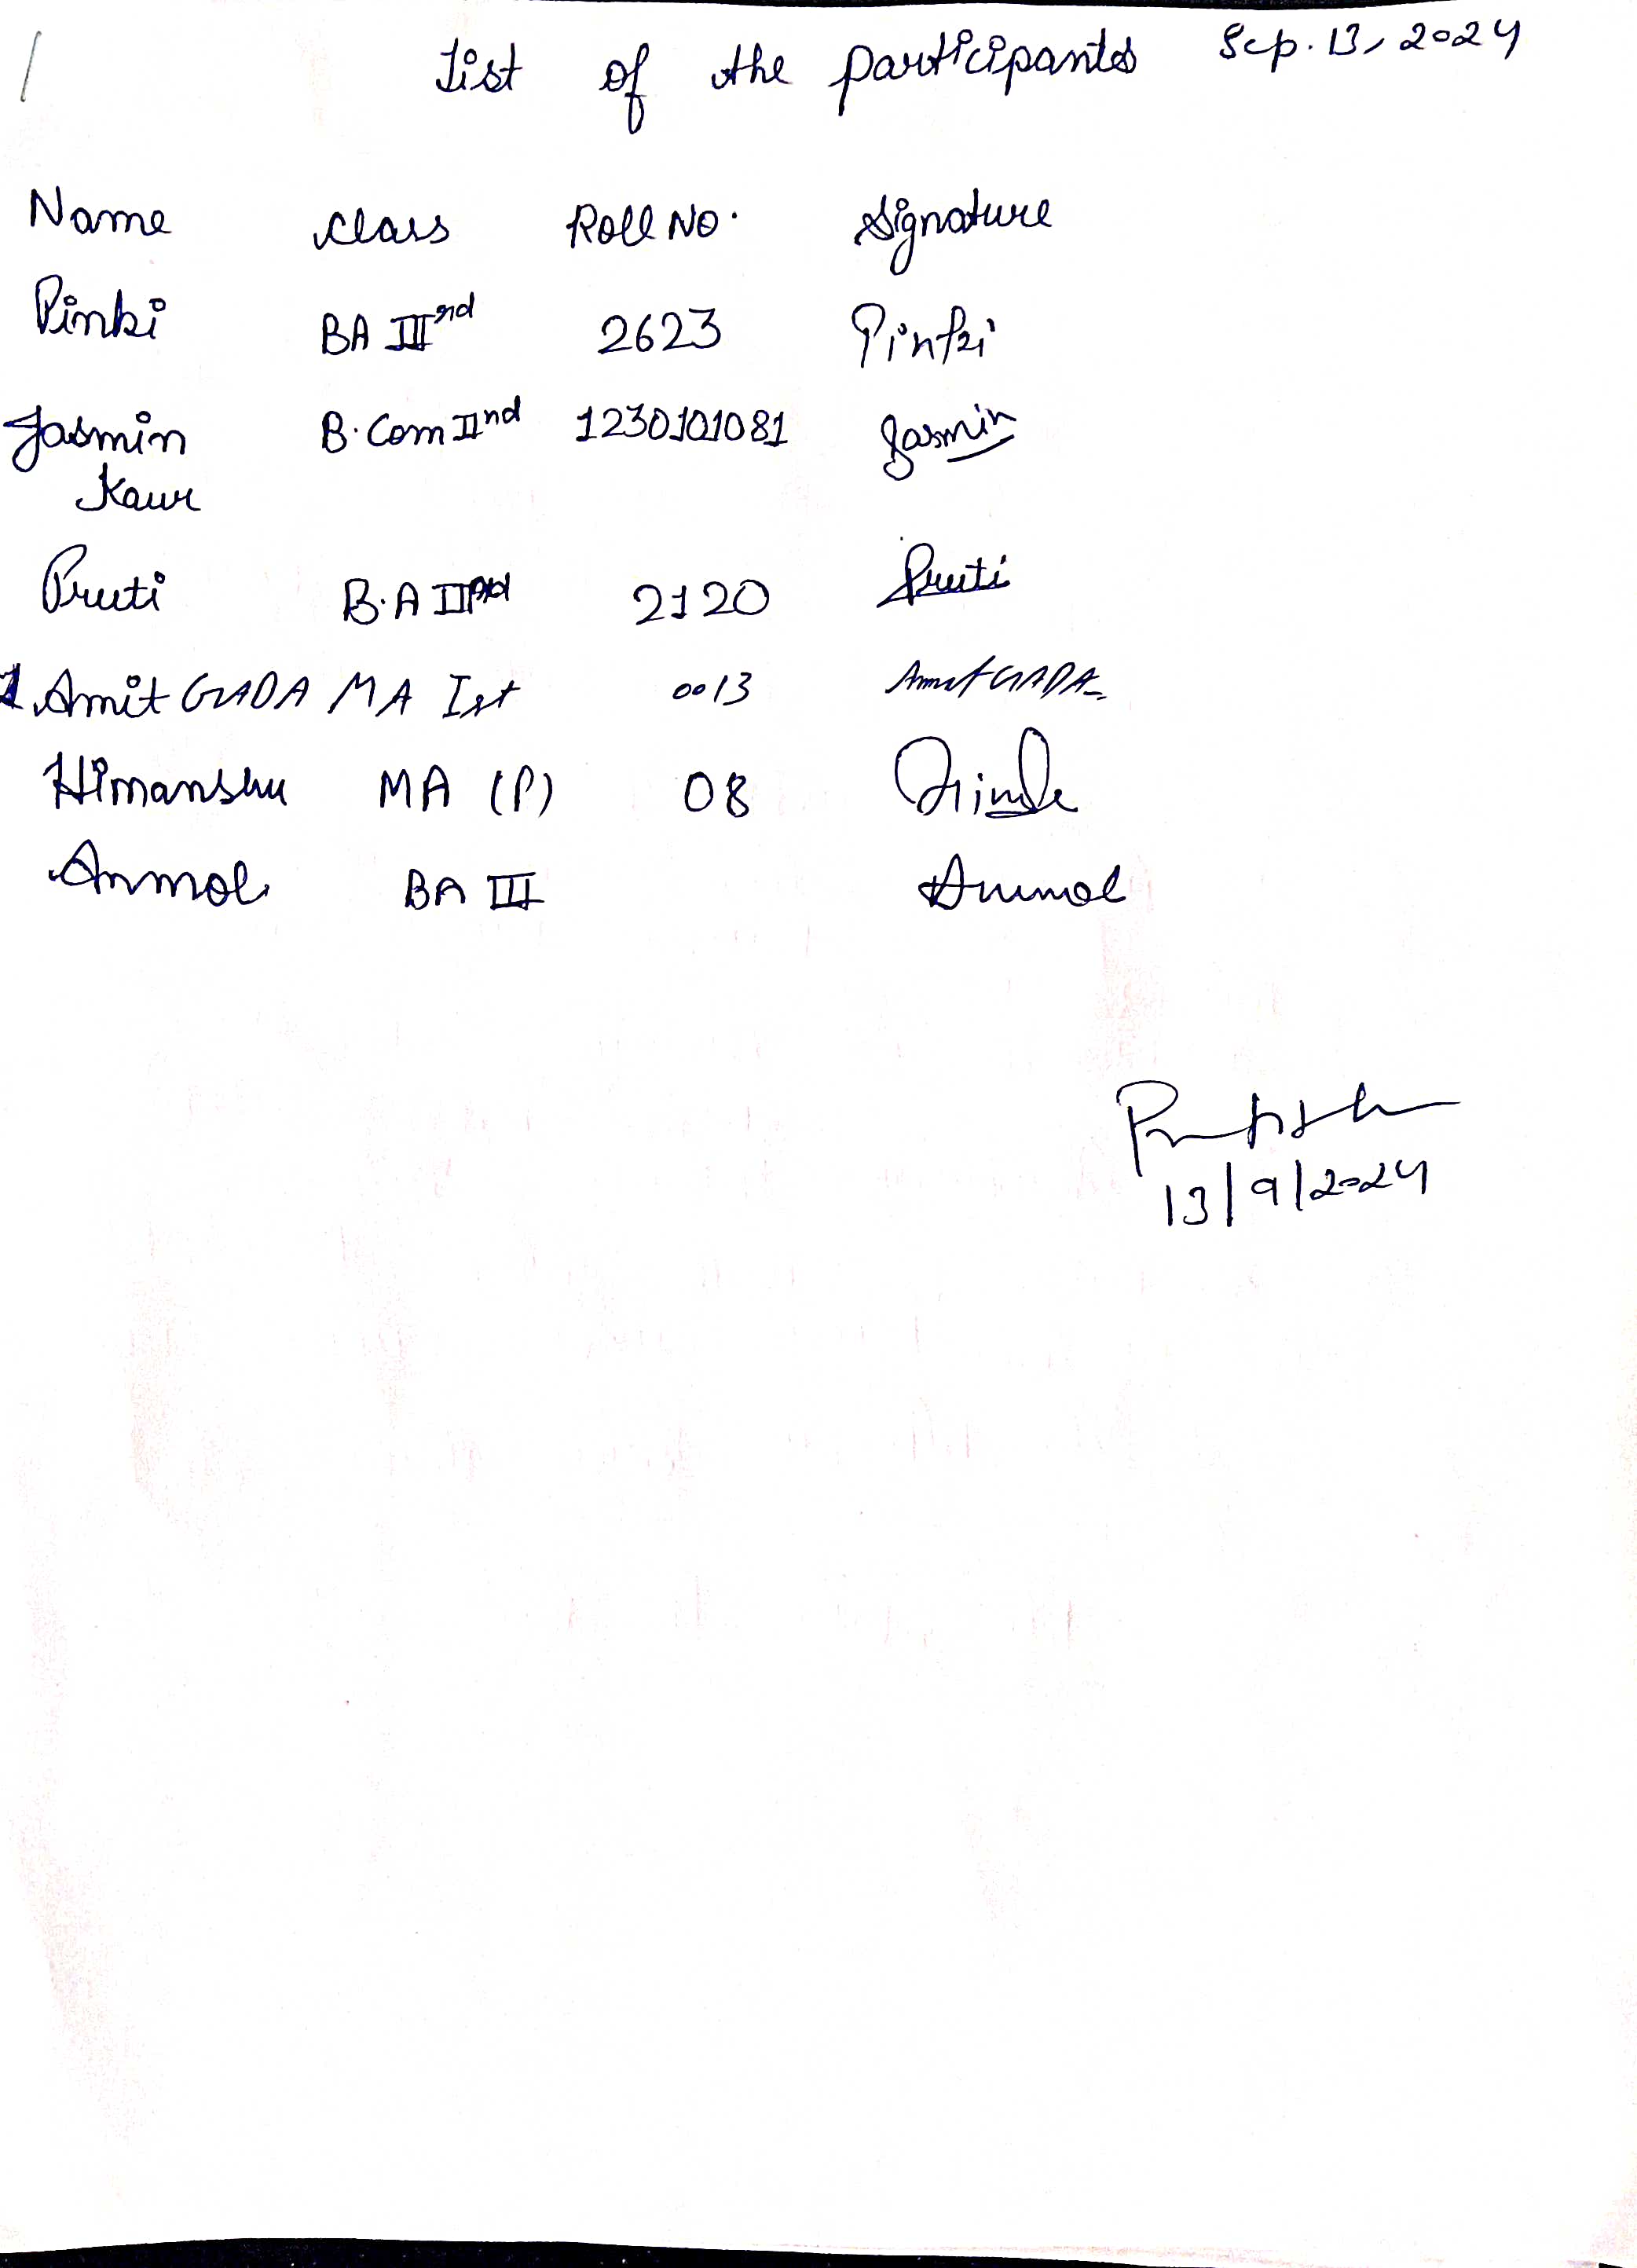 List of the participants Sep. 13, 2024
Name class Roll No. Signature
Pinki BA IIIrd 2623 Pinki
Jasmin B.Com IInd 1230101081 Jasmin
Kaur
Pruti B.A IInd 2120 Pruti
1. Amit GADA MA Ist 0013 Amit GADA
Himanshu MA (P) 08
Anmol BA III Anmol
13/9/2024